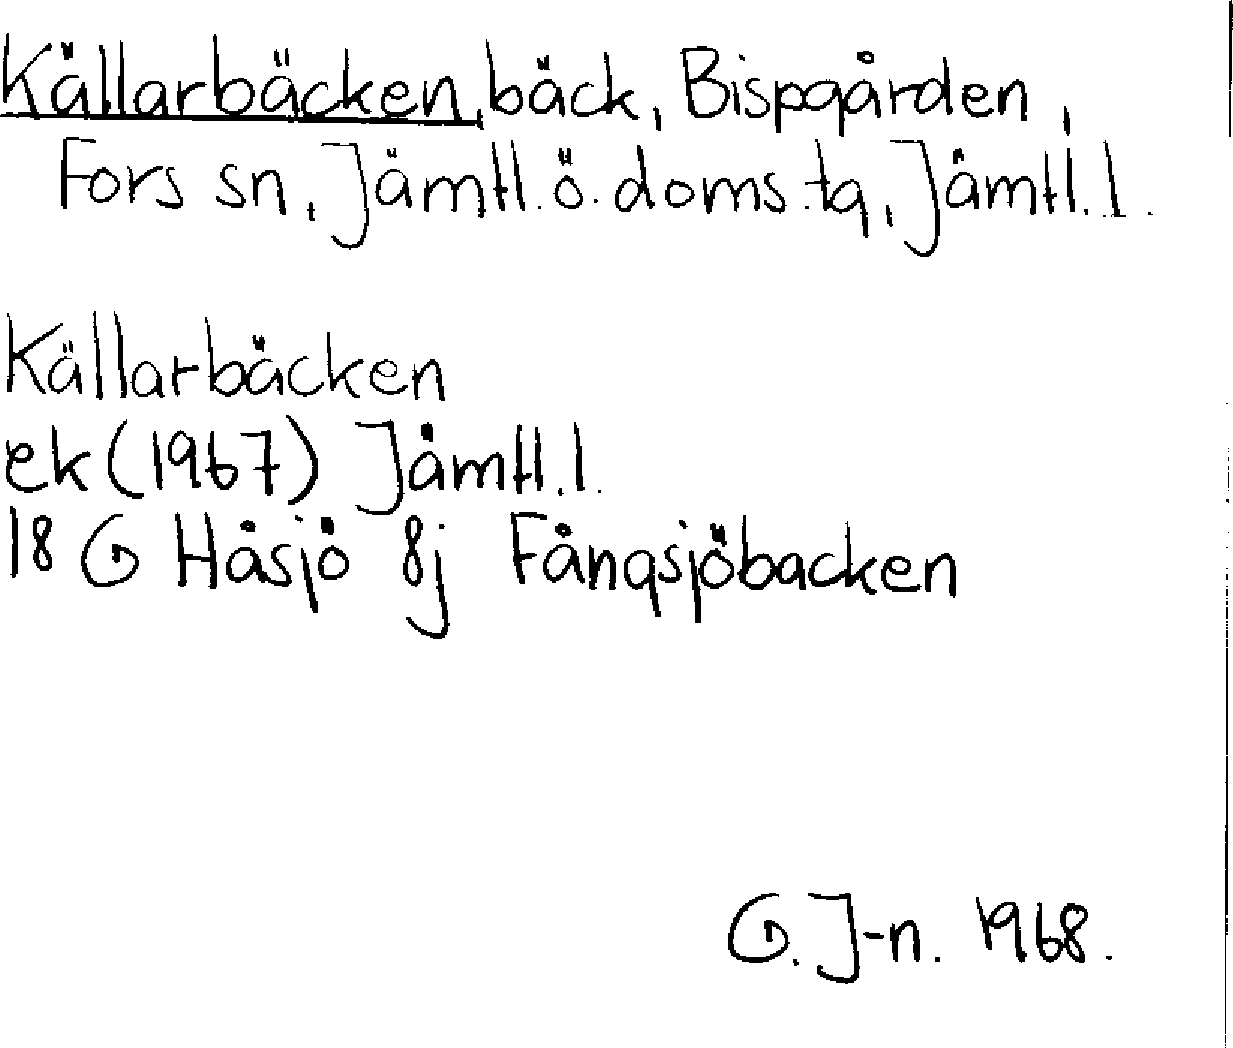 Källarbäcken, bäck, Bispgården,
Fors sn, Jämtl. ö. doms. tg, Jämtl. l.
Källarbäcken
ek (1967) Jämtl. l.
18 G Håsjö 8j Fångsjöbacken
G. J-n. 1968.